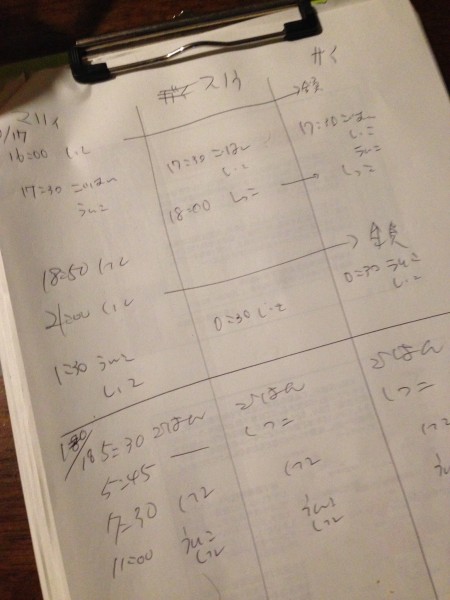 スリィ スリィ サイ
全員
16:00 しっこ
17:30 ごはん 17:30 ごはん 17:30 ごはん
うんこ しっこ しっこ
うんこ
18:00 しっこ しっこ
18:50 しっこ
全員
21:00 しっこ 0:30 しっこ 0:30 うんこ
しっこ
1:30 うんこ
しっこ
18 5:30 ごはん ごはん ごはん
しっこ しっこ
5:45
7:30 しっこ しっこ
11:00 うんこ うんこ
しっこ しっこ